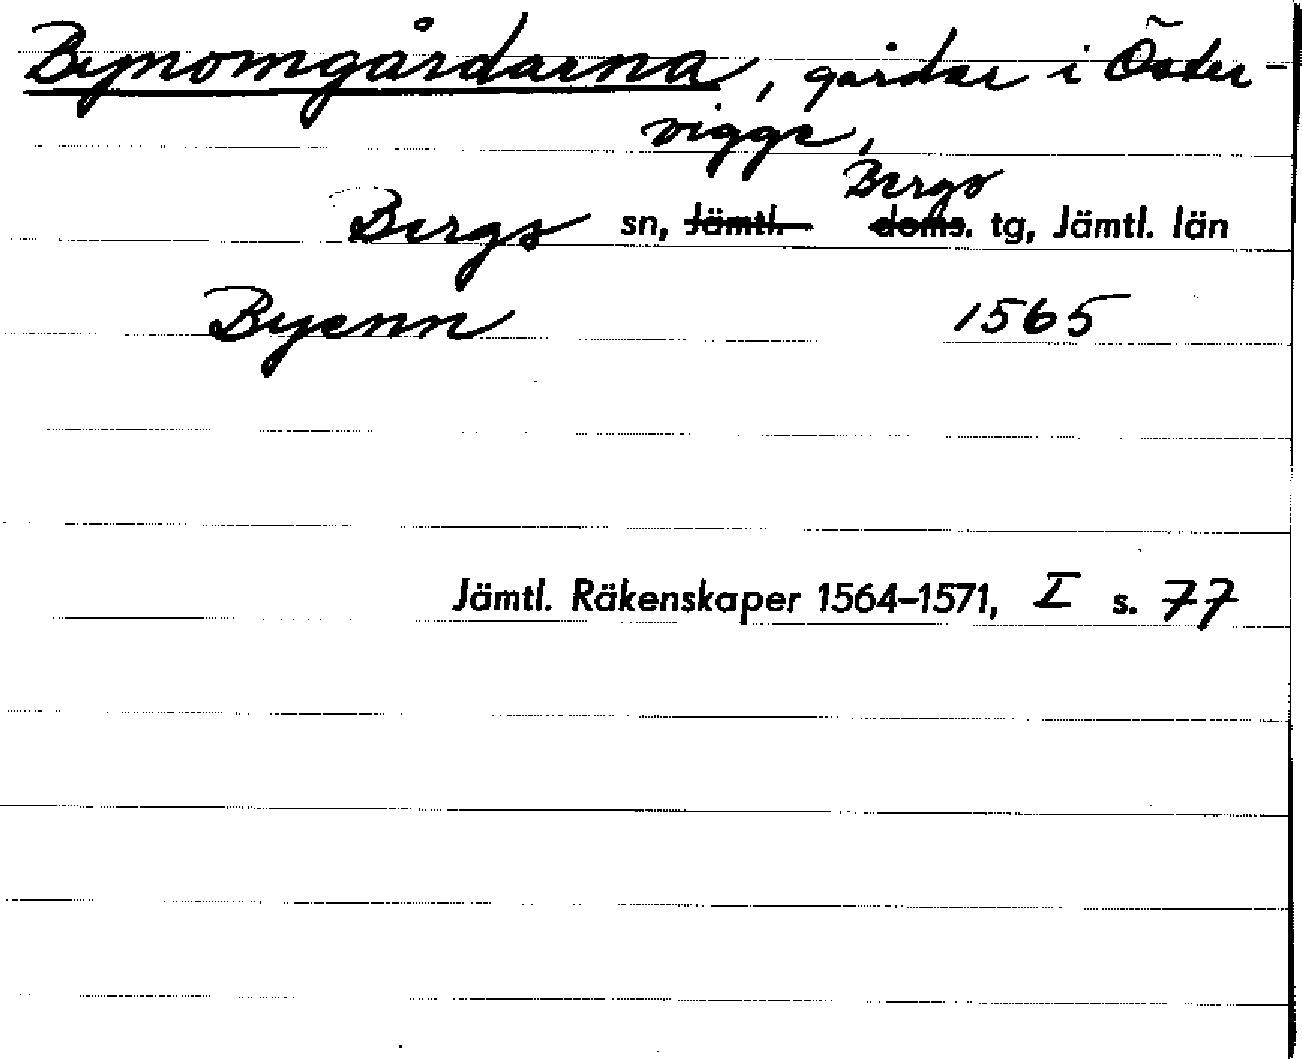 Bynomgårdarna, gårdar i Öster-
vigge,
Bergs sn, Jämtl. doms. Bergs tg, Jämtl. län
Byenn 1565
Jämtl. Räkenskaper 1564–1571, I s. 77